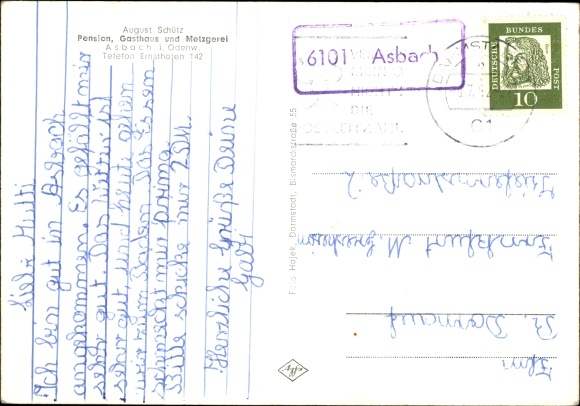 August Schütz
Pension, Gasthaus und Metzgerei
Asbach i. Odenw.
Telefon Ernsthofen 142
6101 Asbach
DEUTSCHE BUNDESPOST
10
Liebe Mutti
Ich bin gut in Asbach
angekommen. Es gefällt mir
sehr gut. Das Wetter ist
sehr gut, und heute gehen
wir zum Baden. Das Essen
schmeckt mir prima.
Bitte schicke mir 2 DM.
Herzliche Grüße Deine
Gabi
Foto Hajek, Darmstadt, Bismarckstraße 55
R. Darnauf
Frankfurt M. Griesheim
2